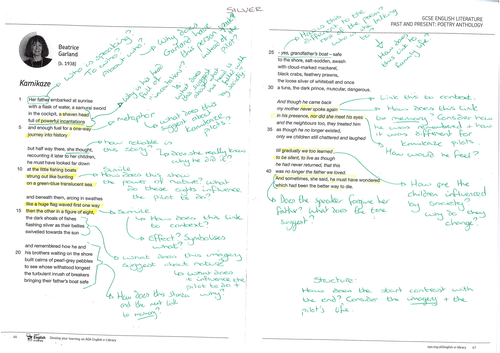 SILVER
GCSE ENGLISH LITERATURE
PAST AND PRESENT: POETRY ANTHOLOGY
Beatrice
Garland
(b. 1938)
Kamikaze
1 Her father embarked at sunrise
with a flask of water, a samurai sword
in the cockpit, a shaven head
full of powerful incantations
5 and enough fuel for a one-way
journey into history
but half way there, she thought,
recounting it later to her children,
he must have looked far down
10 at the little fishing boats
strung out like bunting
on a green-blue translucent sea
and beneath them, arcing in swathes
like a huge flag waved first one way
15 then the other in a figure of eight,
the dark shoals of fishes
flashing silver as their bellies
swivelled towards the sun
and remembered how he and
20 his brothers waiting on the shore
built cairns of pearl-grey pebbles
to see whose withstood longest
the turbulent inrush of breakers
bringing their father's boat safe
25 - yes, grandfather's boat – safe
to the shore, salt-sodden, awash
with cloud-marked mackerel,
black crabs, feathery prawns,
the loose silver of whitebait and once
30 a tuna, the dark prince, muscular, dangerous.
And though he came back
my mother never spoke again
in his presence, nor did she meet his eyes
and the neighbours too, they treated him
35 as though he no longer existed,
only we children still chattered and laughed
till gradually we too learned
to be silent, to live as though
he had never returned, that this
40 was no longer the father we loved.
And sometimes, she said, he must have wondered
which had been the better way to die.
Who is speaking?
To who?
metaphor
How reliable is
this story?
Does she really know
why he did it?
Simile
How does this show
the power of nature? What
do these crafts influence
the pilot to do?
Simile
How does this link
to context?
Effect? Symbolises
what?
What does this imagery
suggest about nature?
How does this stanza
and the next link
to memory?
Link this to context.
How does this link
to memory? Consider how
he was remembered + how
it was different for
kamikaze pilots
How would he feel?
How are the
children influenced
by society?
Why do they
change?
Does the speaker forgive her
father? What does the tone
suggest?
Structure:
How does the start contrast with
the end? Consider the imagery + the
pilot's life.